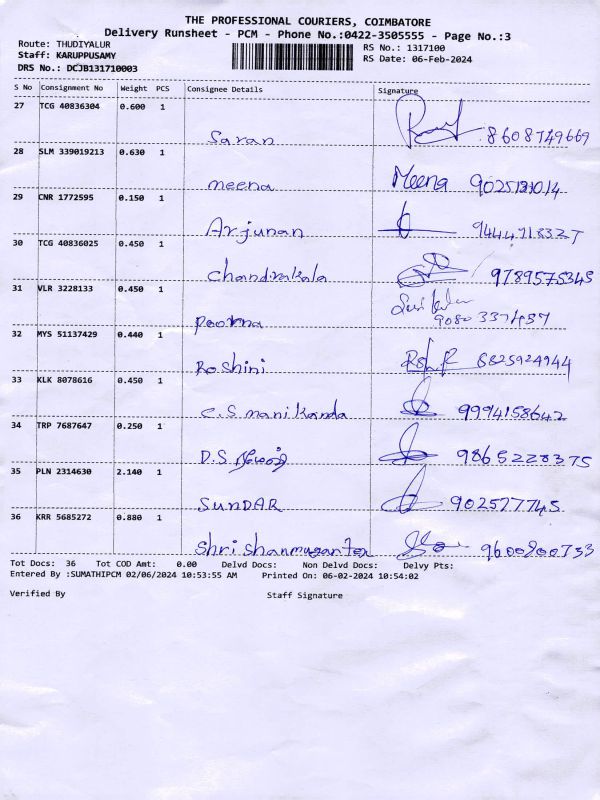 THE PROFESSIONAL COURIERS, COIMBATORE
Delivery Runsheet - PCM - Phone No.:0422-3505555 - Page No.:3
Route: THUDIYALUR RS No.: 1317100
Staff: KARUPPUSAMY RS Date: 06-Feb-2024
DRS No.: DCJB131710003
S No Consignment No Weight PCS Consignee Details Signature
27 TCG 40836304 0.600 1
Saran 8608749669
28 SLM 339019213 0.630 1
meena Meena
29 CNR 1772595 0.150 1
Arjunan
30 TCG 40836025 0.450 1
Chandrakala 9789575345
31 VLR 3228133 0.450 1
Poorna 9080337457
32 MYS 51137429 0.440 1
Roshini
33 KLK 8078616 0.450 1
C.S manikanda 9994158642
34 TRP 7687647 0.250 1
D.S 9865228375
35 PLN 2314630 2.140 1
SUNDAR 902577745
36 KRR 5685272 0.880 1
9600900733
Tot Docs: 36 Tot COD Amt: 0.00 Delvd Docs: Non Delvd Docs: Delvy Pts:
Entered By :SUMATHIPCM 02/06/2024 10:53:55 AM Printed On: 06-02-2024 10:54:02
Verified By Staff Signature